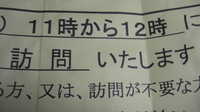 ) 11時から12時 に
訪問 いたします
る方、又は、訪問が不要な方